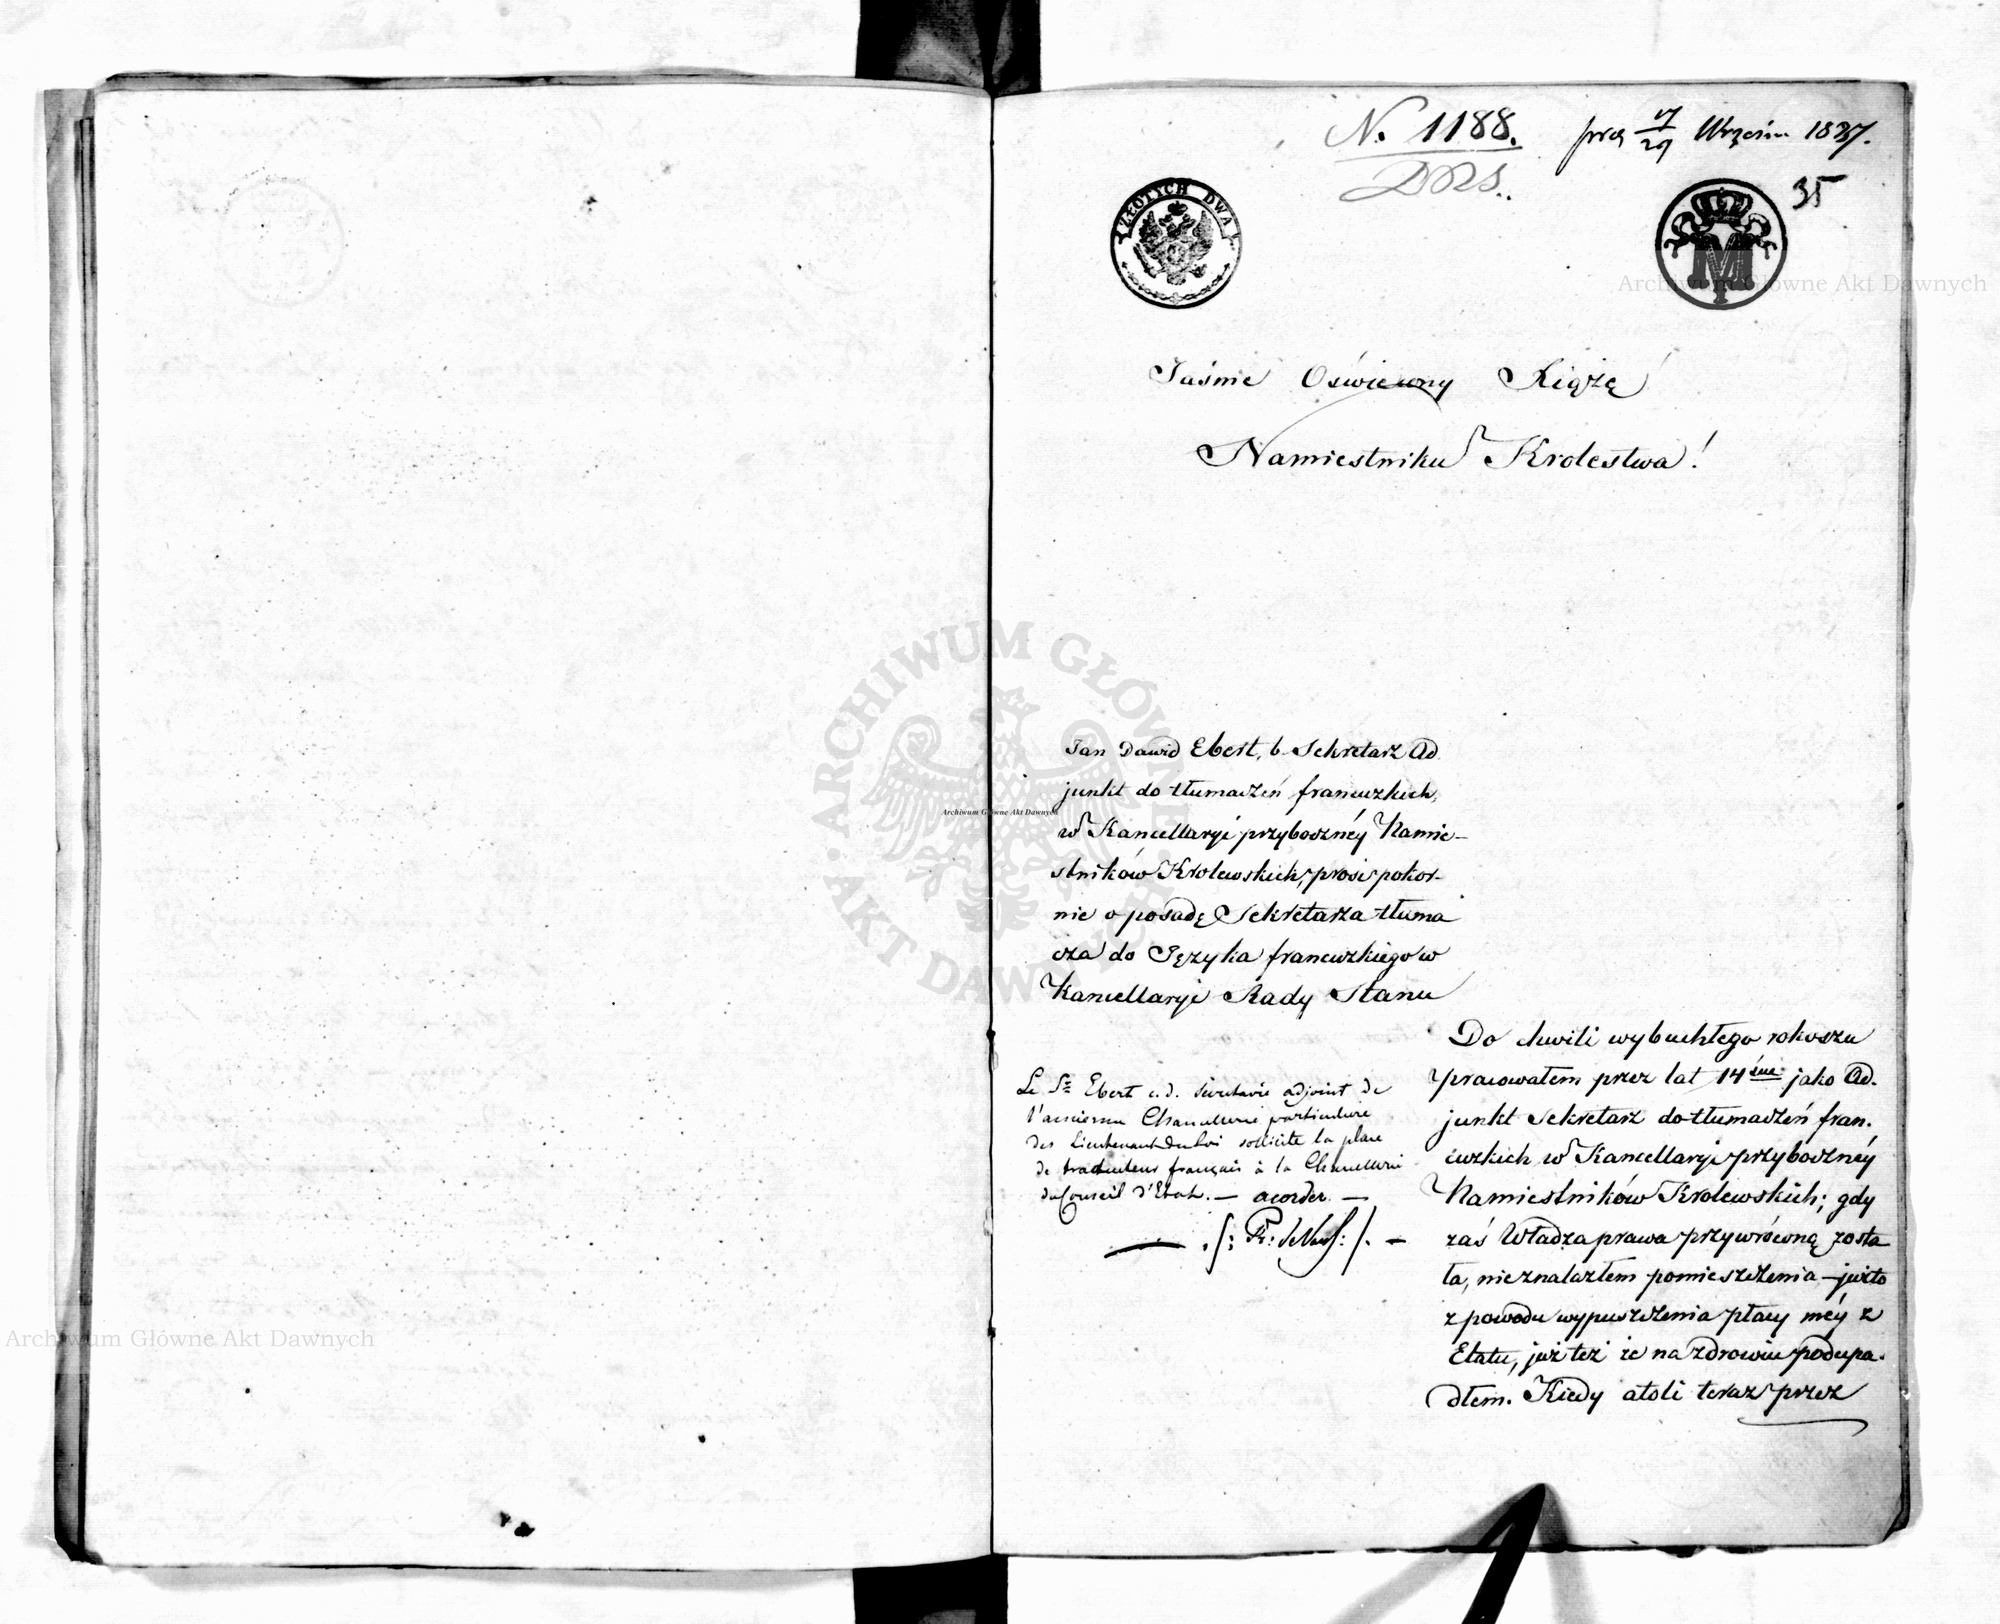 N. 1188.
prez 17/29 Wrześn. 1837.
35
ZŁOTYCH DWA
M
Jaśnie Oświecony Xiążę
Namiestniku Krolestwa!
Jan Dawid Ebert, b. Sekretarz Ad
junkt do tłumaczeń francuzkich,
w Kancellaryi przyboczney Namie-
stników Krolewskich, prosi pokor-
nie o posadę Sekretarza tłuma
cza do Języka francuzkiego w
Kancellaryi Rady Stanu
Le Sr Ebert c. d. Secretaire adjoint de
l'ancienne Chancellerie particuliere
des Lieutenants du Roi sollicite la place
de traducteur français à la Chancellerie
du Conseil d'Etat. — acorder. —
Do chwili wybuchłego rokoszu
pracowałem przez lat 14ście jako Ad-
junkt Sekretarz do tłumaczeń fran-
cuzkich w Kancellaryi przyboczney
Namiestników Krolewskich; gdy
zaś Władza prawa przywróconą zosta
ła, nie znalazłem pomieszczenia – już to
z powodu wypuszczenia płacy méy z
Etatu, już też że na zdrowiu podupa-
dłem. Kiedy atoli teraz przez
ARCHIWUM GŁÓWNE AKT DAWNYCH
Archiwum Główne Akt Dawnych
Archiwum Główne Akt Dawnych
Archiwum Główne Akt Dawnych